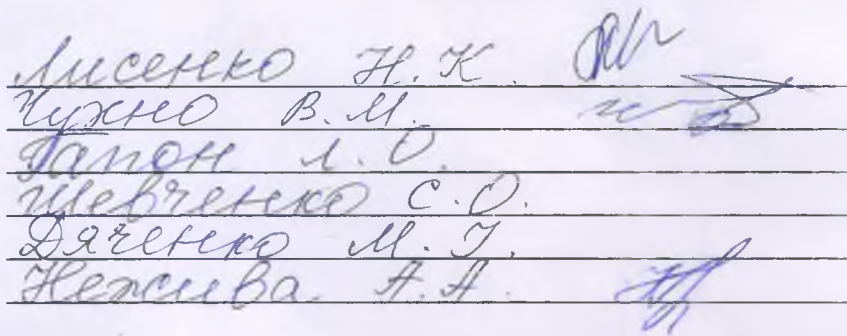 Лисенко Н. К.
Чухно В. М.
Гапон Л. О.
Шевченко С. О.
Дяченко М. І.
Нежива А. А.